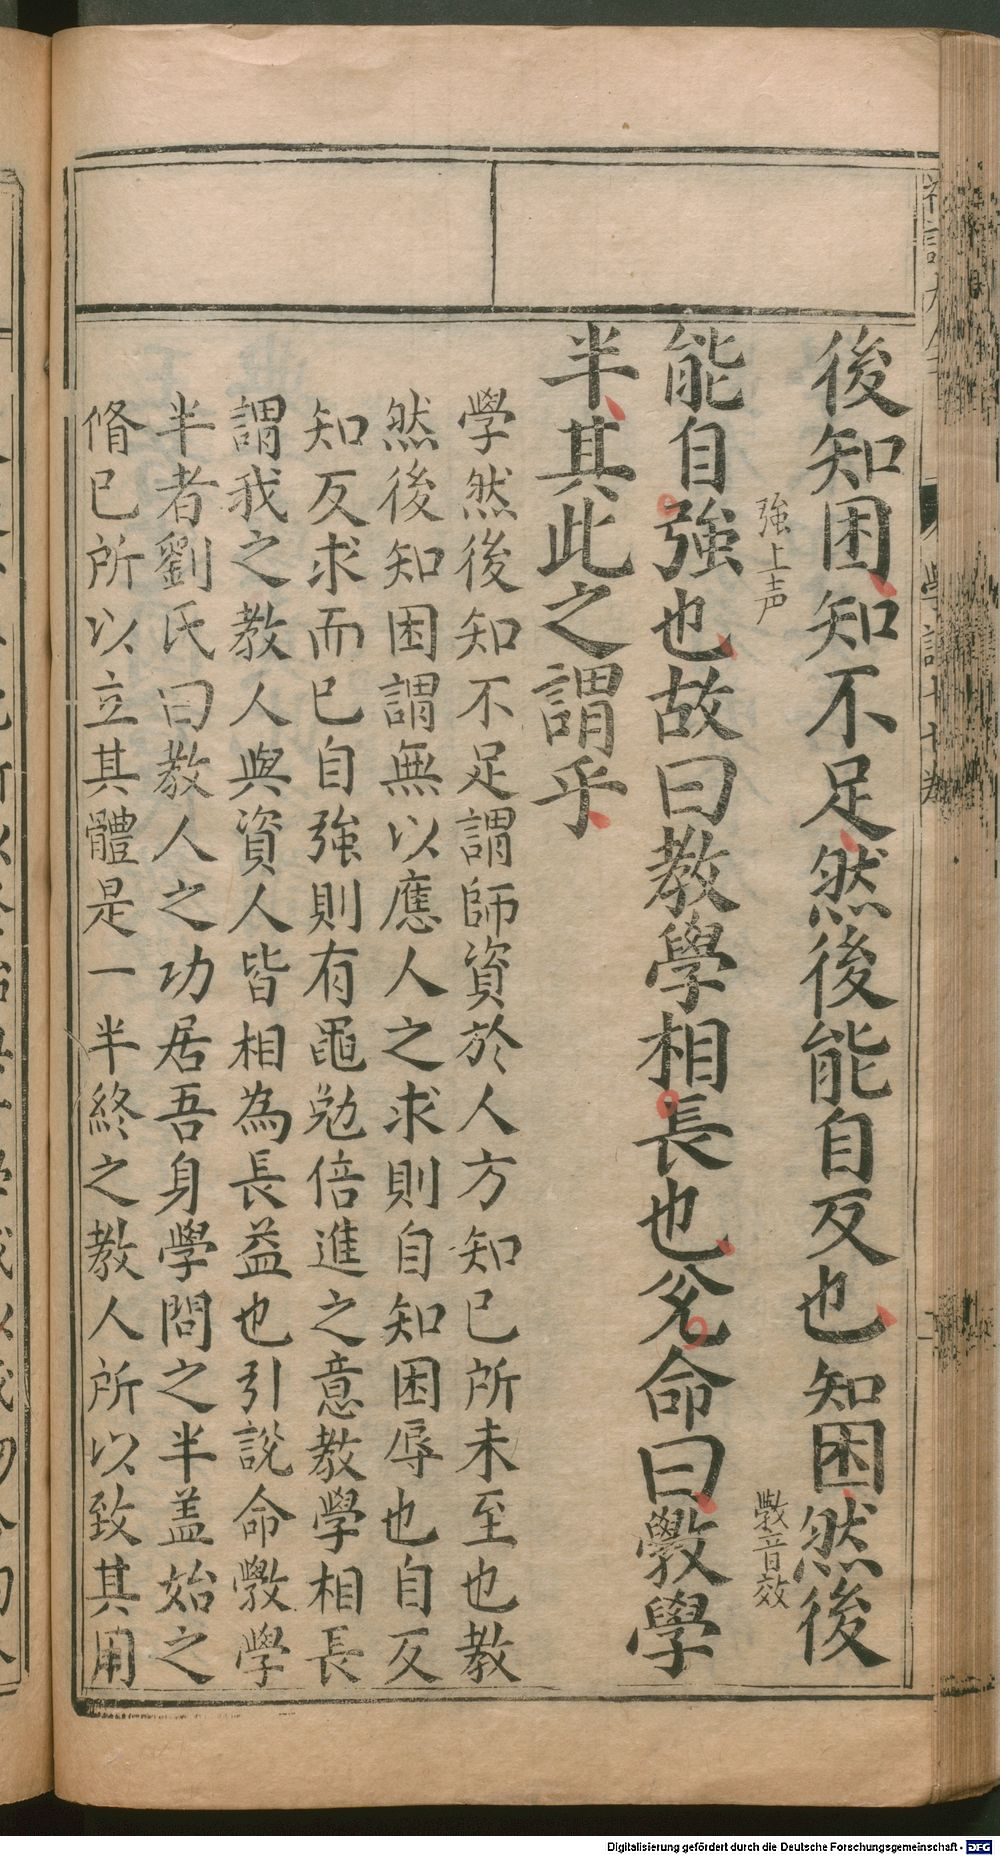 後知困知不足然後能自反也知困然後
強上声
斆音效
能自強也故曰教學相長也兊命曰斆學
半其此之謂乎
學然後知不足謂師資於人方知已所未至也教
然後知困謂無以應人之求則自知困辱也自反
知反求而已自強則有黽勉倍進之意教學相長
謂我之教人與資人皆相為長益也引說命斆學
半者劉氏曰教人之功居吾身學問之半盖始之
脩已所以立其體是一半終之教人所以致其用
Digitalisierung gefördert durch die Deutsche Forschungsgemeinschaft - DFG